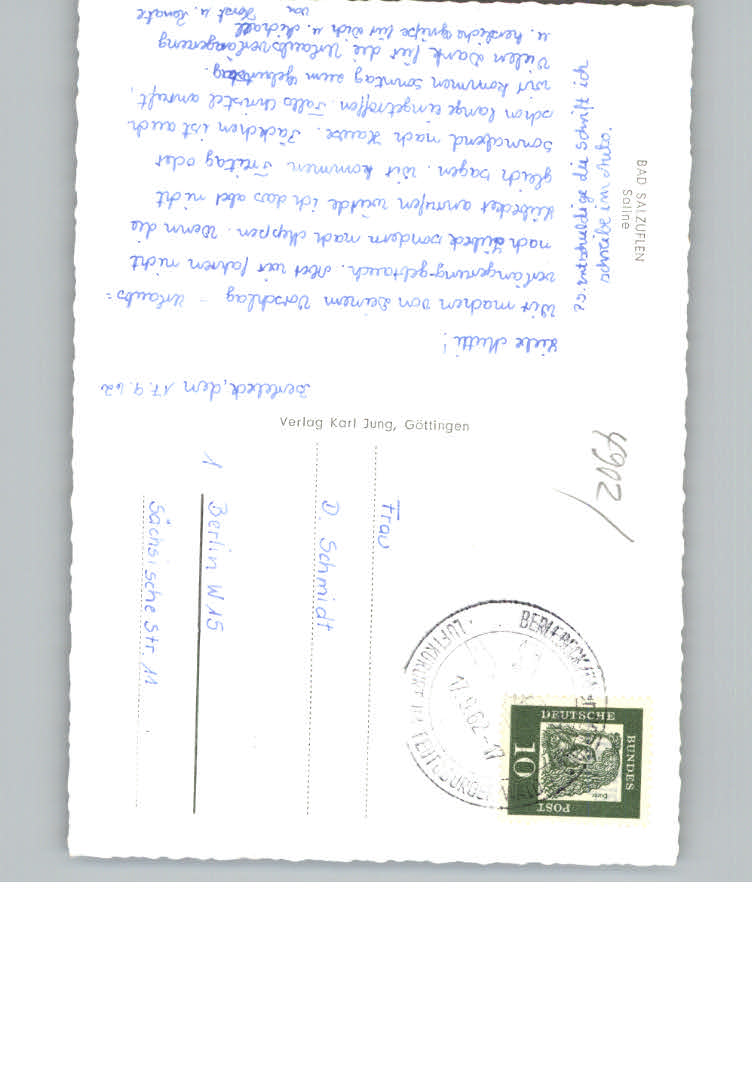 Berlebeck, den 17.9.62
Liebe Mutti!
Wir machen von Deinem Vorschlag - Urlaubs=
verlängerung - gebrauch. Aber wir fahren nicht
nach Lübeck sondern nach Meppen. Wenn die
Lübecker anrufen würde ich das aber nicht
gleich sagen. Wir kommen Freitag oder
Sonnabend nach Hause. Jäckchen ist auch
schon lange eingetroffen. Falls Christel anruft,
wir kommen Sonntag zum Geburtstag.
Vielen Dank für die Urlaubsverlängerung
u. herzliche Grüße für Dich u. Michael
von Horst u. Renate
P.S. entschuldige die Schrift ich
schreibe im Auto.
BAD SALZUFLEN
Saline
Verlag Karl Jung, Göttingen
4902/
Frau
D. Schmidt
1 Berlin W 15
Sächsische Str. 11
BERLEBECK
LUFTKURORT IM TEUTOBURGER WALD
17.9.62-17
DEUTSCHE
BUNDES
POST
10